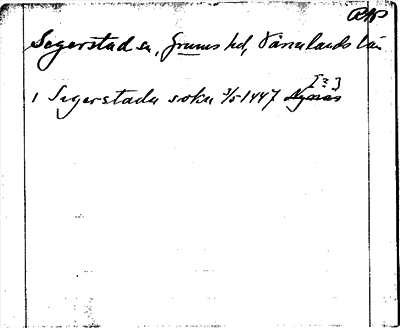 RAP
Segerstad sn, Grums hd, Värmlands län
[?]
i Segerstada sokn 3/5 1447 Nynäs